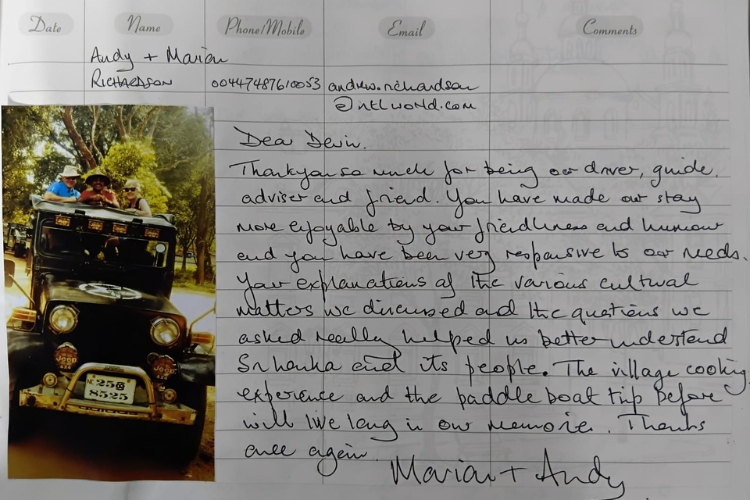 Date Name Phone/Mobile Email Comments
Andy + Marian
RICHARDSON 00447487610053 andrew.richardson
@ntlworld.com
Dear Devin.
Thankyou so much for being our driver, guide,
adviser and friend. You have made our stay
more enjoyable by your friendliness and humour
and you have been very responsive to our needs.
Your explanations of the various cultural
matters we discussed and the questions we
asked really helped us better understand
Sri Lanka and its people. The village cooking
experience and the paddle boat trip before
will live long in our memories. Thanks
once again.
Marian + Andy
250
8525